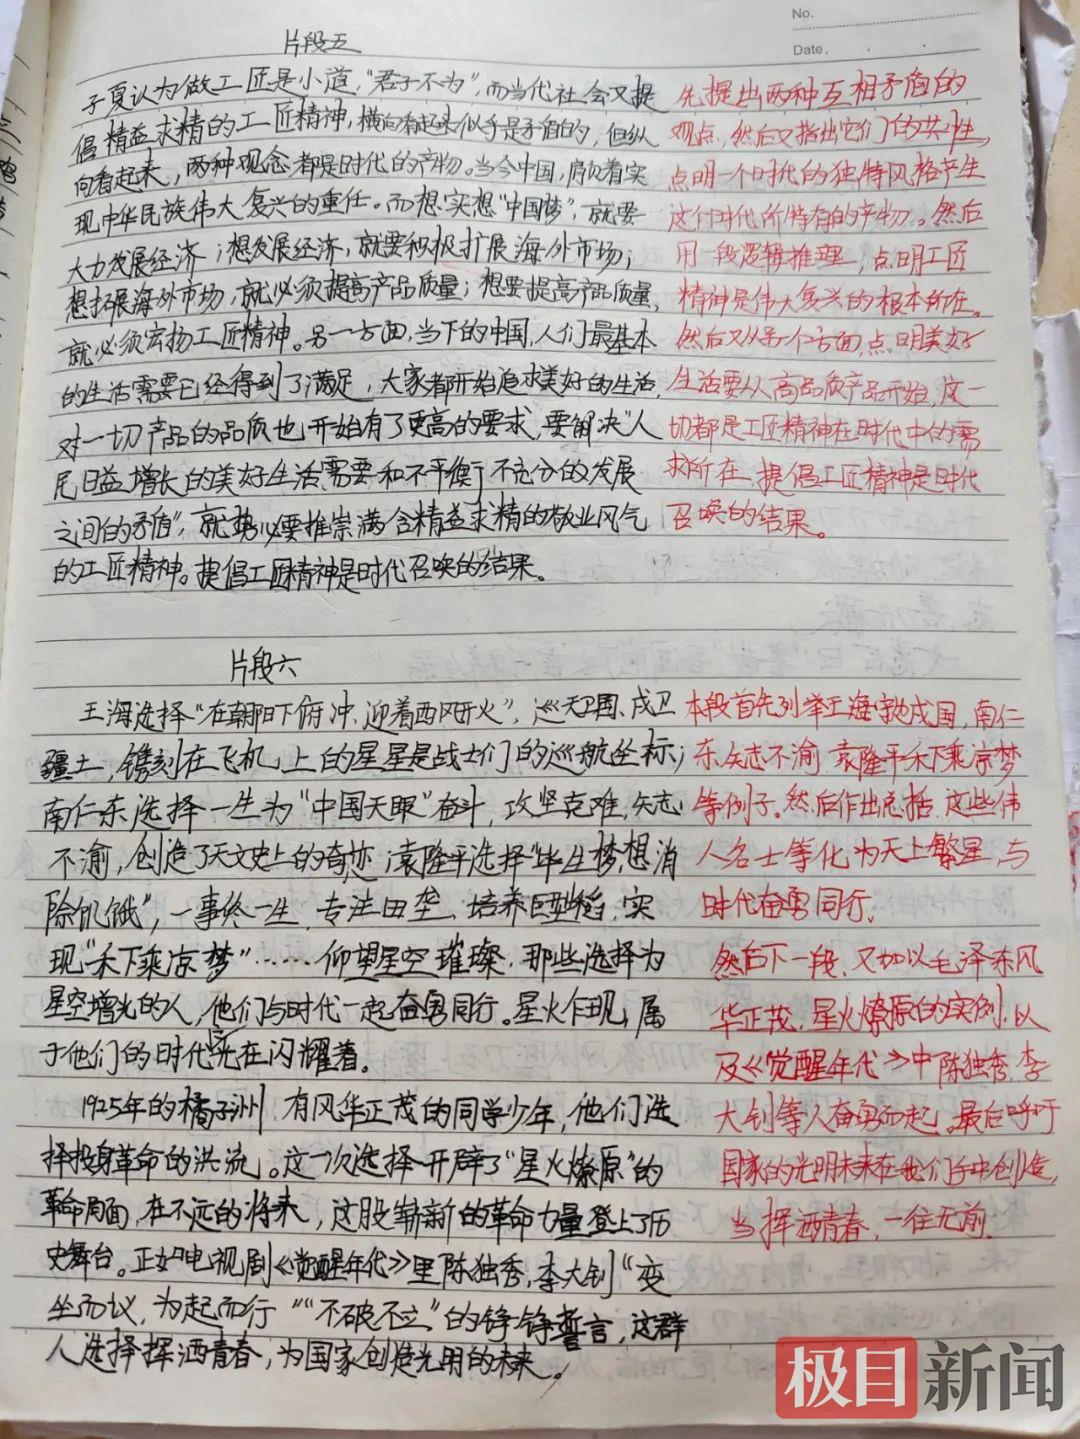 No.
Date
片段五
子夏认为做工匠是小道，“君子不为”，而当代社会又提
倡精益求精的工匠精神，横向看起来似乎是矛盾的，但纵
向看起来，两种观念都是时代的产物。当今中国，肩负着实
现中华民族伟大复兴的重任。而想实想“中国梦”，就要
大力发展经济；想发展经济，就要积极扩展海外市场；
想拓展海外市场，就必须提高产品质量；想要提高产品质量，
就必须宏扬工匠精神。另一方面，当下的中国，人们最基本
的生活需要已经得到了满足，大家都开始追求美好的生活，
对一切产品的品质也开始有了更高的要求，要解决“人
民日益增长的美好生活需要和不平衡不充分的发展
之间的矛盾”，就势必要推崇满含精益求精的敬业风气
的工匠精神。提倡工匠精神是时代召唤的结果。
先提出两种互相矛盾的
观点，然后又指出它们的共性，
点明一个时代的独特风格产生
这个时代所特有的产物。然后
用一段逻辑推理，点明工匠
精神是伟大复兴的根本所在。
然后又从另个方面，点明美好
生活要从高品质产品开始，这一
切都是工匠精神在时代中的需
求所在，提倡工匠精神是时代
召唤的结果。
片段六
王海选择“在朝日下俯冲，迎着西风开火”，巡天卫国、戍卫
疆土，镌刻在飞机上的星星是战士们的巡航坐标；
南仁东选择一生为“中国天眼”奋斗，攻坚克难，矢志
不渝，创造了天文史上的奇迹；袁隆平选择“毕生梦想消
除饥饿”，一事终一生，专注田垄、培养巨型稻，实
现“禾下乘凉梦”……仰望星空璀璨，那些选择为
星空增光的人，他们与时代一起奋勇同行。星火乍现，属
于他们的时代光在闪耀着。
1925年的橘子洲，有风华正茂的同学少年，他们选
择投身革命的洪流。这一次选择开辟了“星火燎原”的
革命局面，在不远的将来，这股崭新的革命力量登上了历
史舞台。正如电视剧《觉醒年代》里陈独秀，李大钊“变
坐而议，为起而行”“不破不立”的铮铮誓言，这群
人选择挥洒青春，为国家创造光明的未来。
本段首先列举王海守戍国，南仁
东矢志不渝，袁隆平禾下乘凉梦
等例子。然后作出总括，这些伟
人名士等化为天上繁星，与
时代奋勇同行，
然后下一段，又加以毛泽东风
华正茂，星火燎原的实例，以
及《觉醒年代》中陈独秀，李
大钊等人奋勇而起。最后呼吁
国家的光明未来在我们手中创造，
当挥洒青春，一往无前.
极目新闻